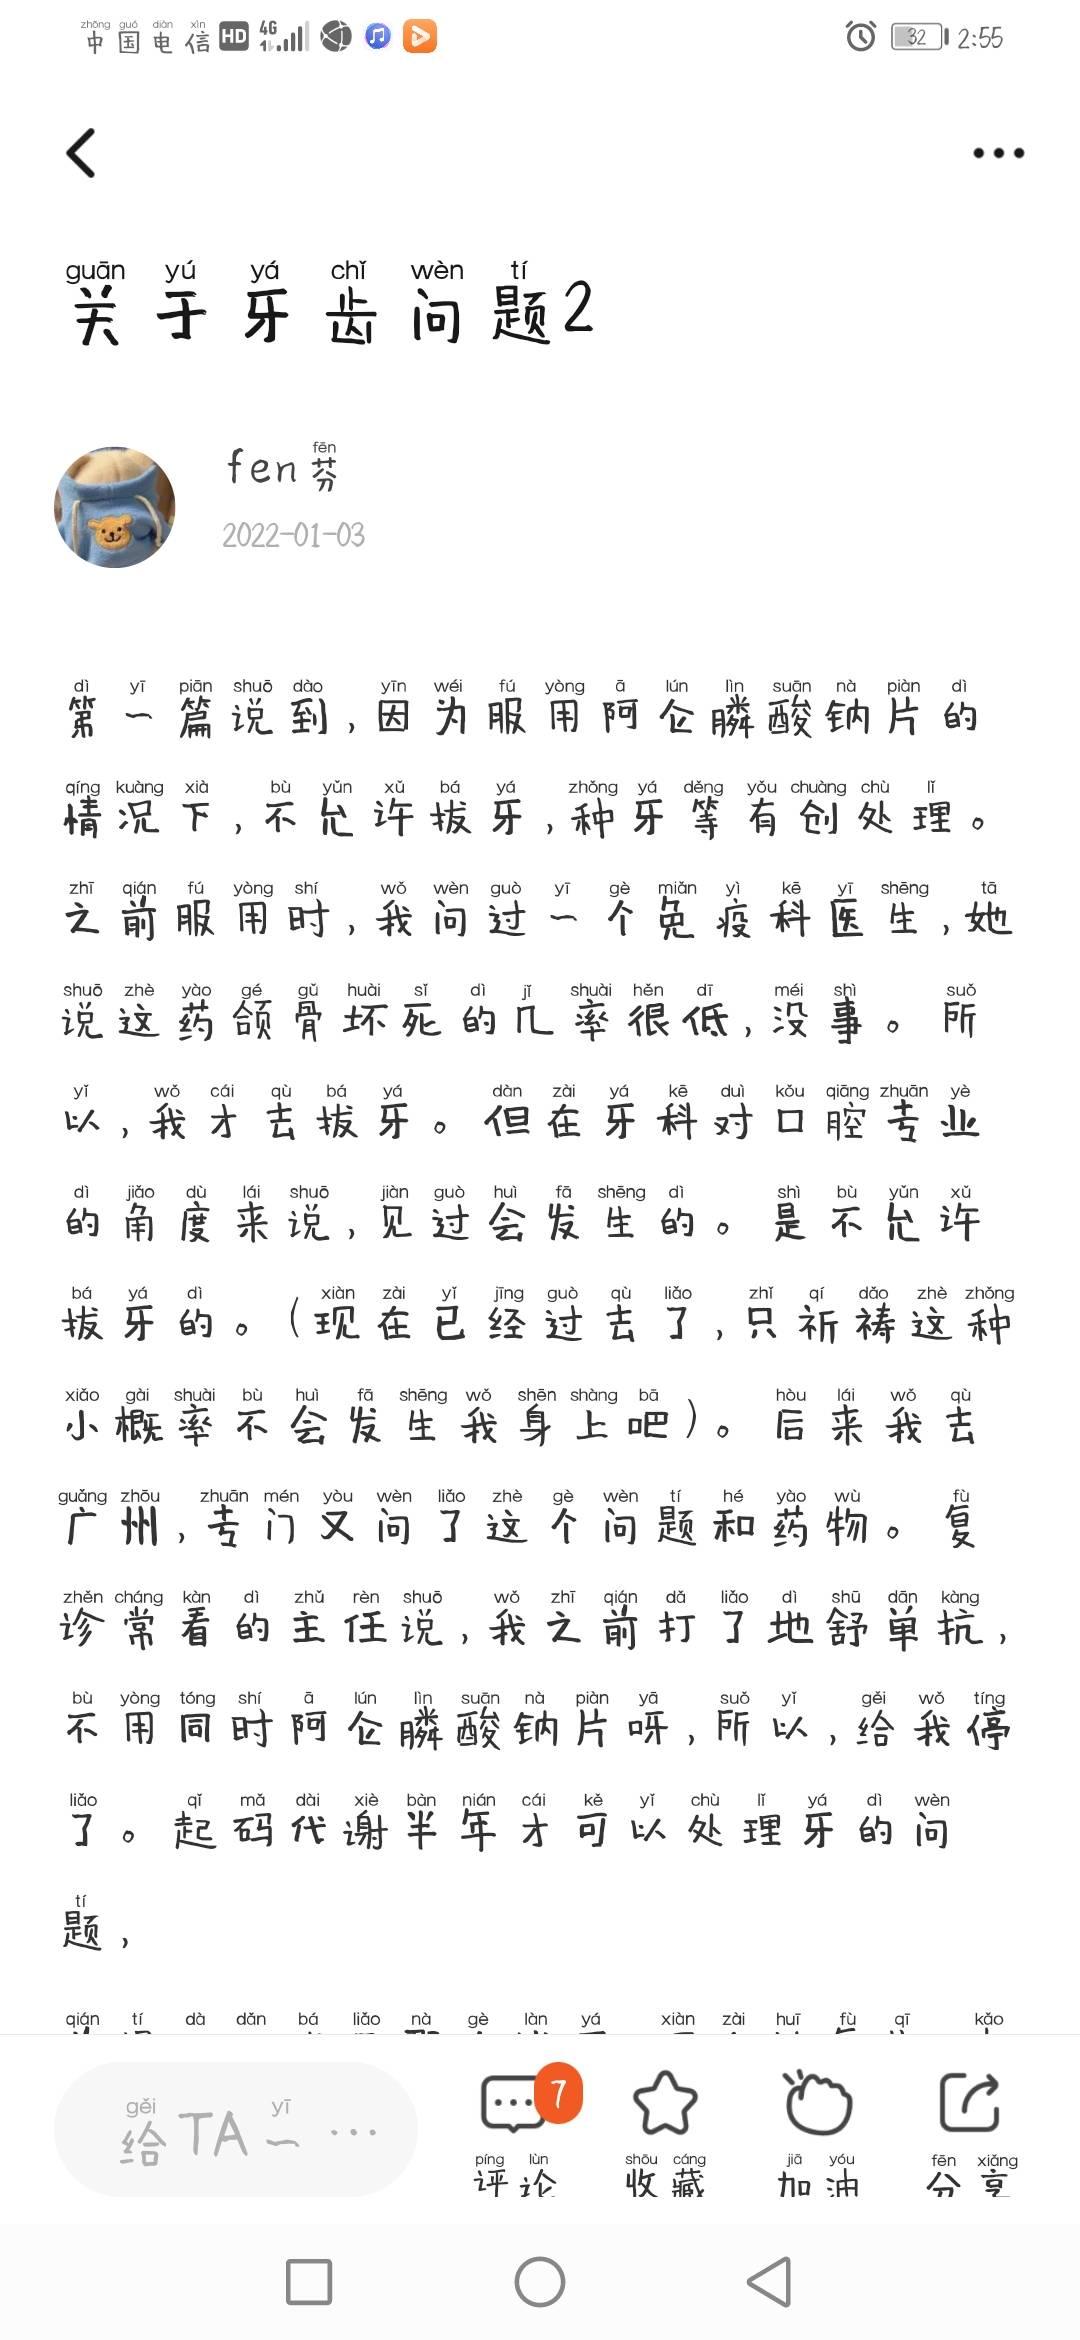 中国电信 HD 4G 32 2:55
关于牙齿问题2
fen芬
2022-01-03
第一篇说到,因为服用阿仑膦酸钠片的
情况下,不允许拔牙,种牙等有创处理。
之前服用时,我问过一个免疫科医生,她
说这药颌骨坏死的几率很低,没事。所
以,我才去拔牙。但在牙科对口腔专业
的角度来说,见过会发生的。是不允许
拔牙的。(现在已经过去了,只祈祷这种
小概率不会发生我身上吧)。后来我去
广州,专门又问了这个问题和药物。复
诊常看的主任说,我之前打了地舒单抗,
不用同时阿仑膦酸钠片呀,所以,给我停
了。起码代谢半年才可以处理牙的问
题,
给TA一…
7
评论 收藏 加油 分享